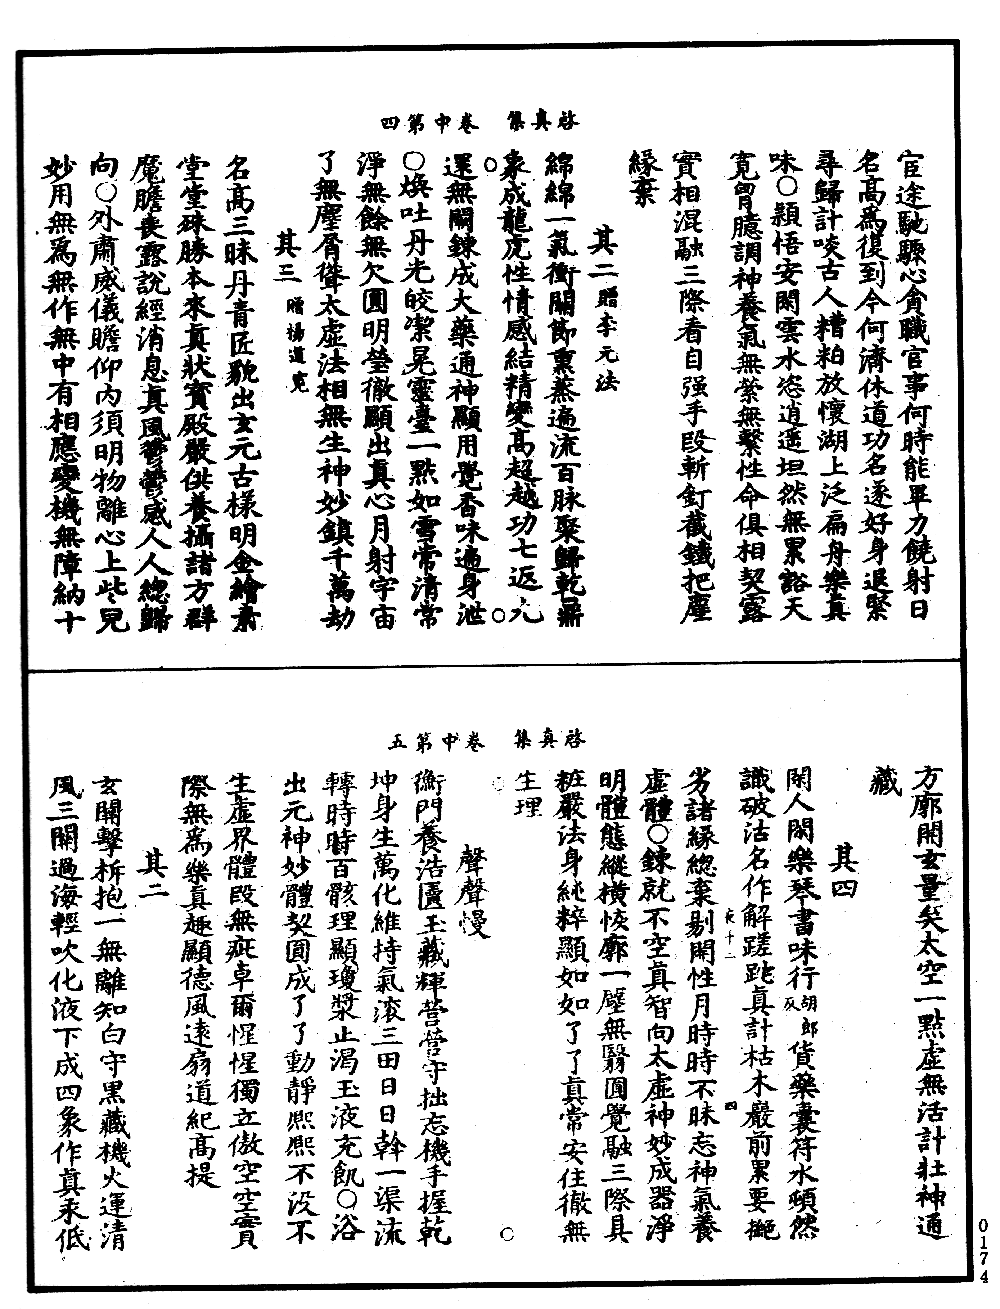 啓真集　卷中第四
宦途馳驟心貪職官事何時能畢刀饒射日
名高為復到今何濟休道功名遂好身退緊
尋歸計啖古人糟粕放懷湖上泛扁舟樂真
味○穎悟安閑雲水恣逍遥坦然無累豁天
寬胷臆調神養氣無縈無繫性命俱相契露
實相混融三際看自强手段斬釘截鐵把塵
緣棄
其二贈李元法
綿綿一氣衝關節熏蒸遍流百脉聚歸乾鼎
象成龍虎性情感結精變高超越功七返九
還無闕鍊成大藥通神顯用覺香味遍身泄
○煥吐丹光皎潔晃靈臺一點如雪常清常
淨無餘無欠圓明瑩徹顯出真心月射宇宙
了無塵屑聳太虛法相無生神妙鎮千萬劫
其三贈楊道寬
名高三昧丹青匠貌出玄元古樣明金繪素
堂堂殊勝本來真狀寶殿嚴供養攝諸方群
魔膽喪露說經消息真風鬱鬱感人人總歸
向○外肅威儀瞻仰內須明物離心上些兒
妙用無為無作無中有相應變機無障納十
啓真集　卷中第五
方廓開玄量矣太空一點虛無活計壯神通
藏
其四
閑人閑樂琴書味行胡郎反貨藥囊符水頓然
識破沽名作解蹉跎真計枯木巖前累要撧
劣諸緣總棄剔閑性月時時不昧忘神氣養
虛體○鍊就不空真智向太虛神妙成器淨
明體態縱橫恢廓一壁無翳圓覺融三際具
粧嚴法身純粹顯如如了了真常安住徹無
生理
聲聲慢
衡門養浩匱玉藏輝營營守拙忘機手握乾
坤身生萬化維持氣滚三田日日斡一渠流
轉時時百骸理顯瓊漿止渴玉液充飢○浴
出元神妙體契圓成了了動靜熙熙不沒不
生虛界體段無疵卓爾惺惺獨立傲空空實
際無為樂真趣顯德風遠扇道紀高提
其二
玄關擊柝抱一無離知白守黑藏機火運清
風三關過海輕吹化液下成四象作真汞低
夜十二
四
0174